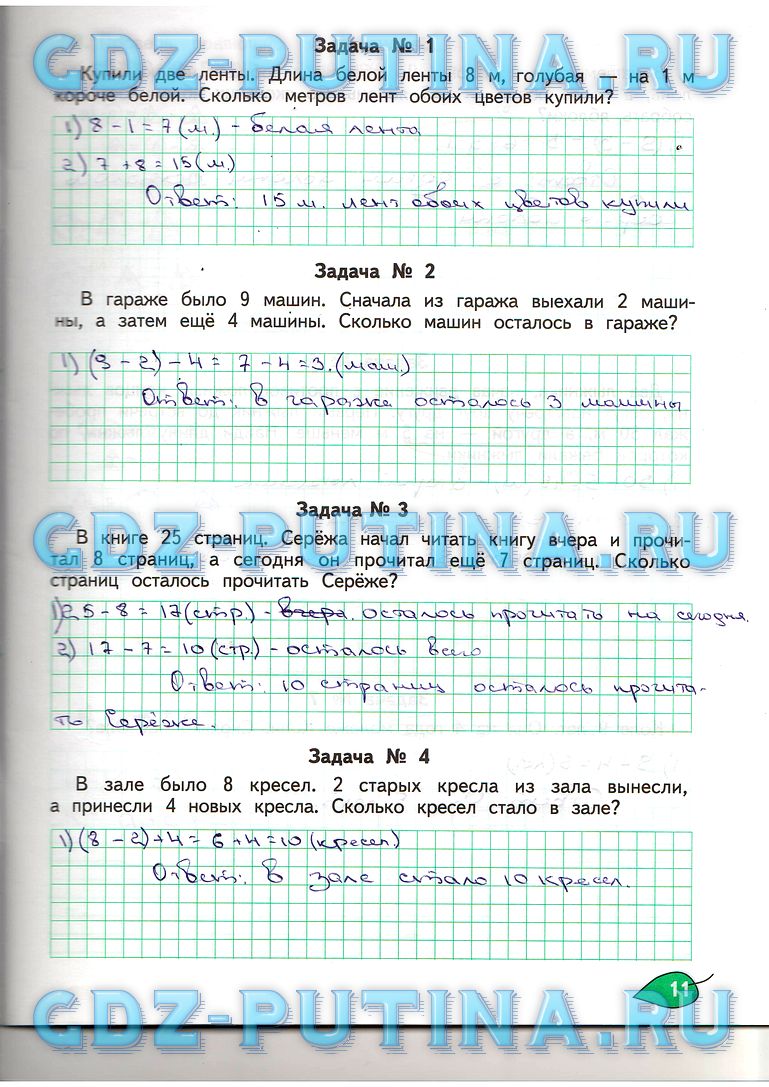 GDZ-PUTINA.RU
Задача № 1
Купили две ленты. Длина белой ленты 8 м, голубая — на 1 м
короче белой. Сколько метров лент обоих цветов купили?
1) 8 - 1 = 7 (м.) - белая лента
2) 7 + 8 = 15 (м)
Ответ: 15 м. лент обоих цветов купили
Задача № 2
В гараже было 9 машин. Сначала из гаража выехали 2 маши-
ны, а затем ещё 4 машины. Сколько машин осталось в гараже?
1) (9 - 2) - 4 = 7 - 4 = 3. (маш.)
Ответ: в гараже осталось 3 машины
Задача № 3
GDZ-PUTINA.RU
В книге 25 страниц. Серёжа начал читать книгу вчера и прочи-
тал 8 страниц, а сегодня он прочитал ещё 7 страниц. Сколько
страниц осталось прочитать Серёже?
1) 25 - 8 = 17 (стр.) - вчера. осталось прочитать на сегодня.
2) 17 - 7 = 10 (стр.) - осталось всего
Ответ: 10 страниц осталось прочита-
ть Серёже.
Задача № 4
В зале было 8 кресел. 2 старых кресла из зала вынесли,
а принесли 4 новых кресла. Сколько кресел стало в зале?
1) (8 - 2) + 4 = 6 + 4 = 10 (кресел.)
Ответ: в зале стало 10 кресел.
11
GDZ-PUTINA.RU